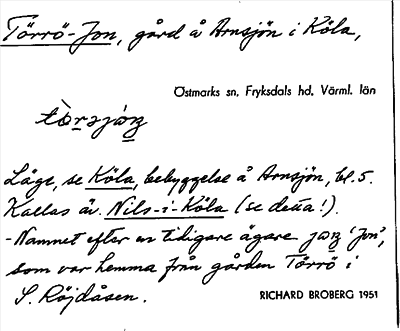 Törrö-Jon, gård å Arnsjön i Köla,
Östmarks sn, Fryksdals hd, Värml. län
Läge, se Köla, bebyggelse å Arnsjön, bl. 5.
Kallas äv. Nils-i-Köla (se detta!).
-Namnet efter en tidigare ägare 'Jon',
som var hemma från gården Törrö i
S. Röjdåsen.
RICHARD BROBERG 1951